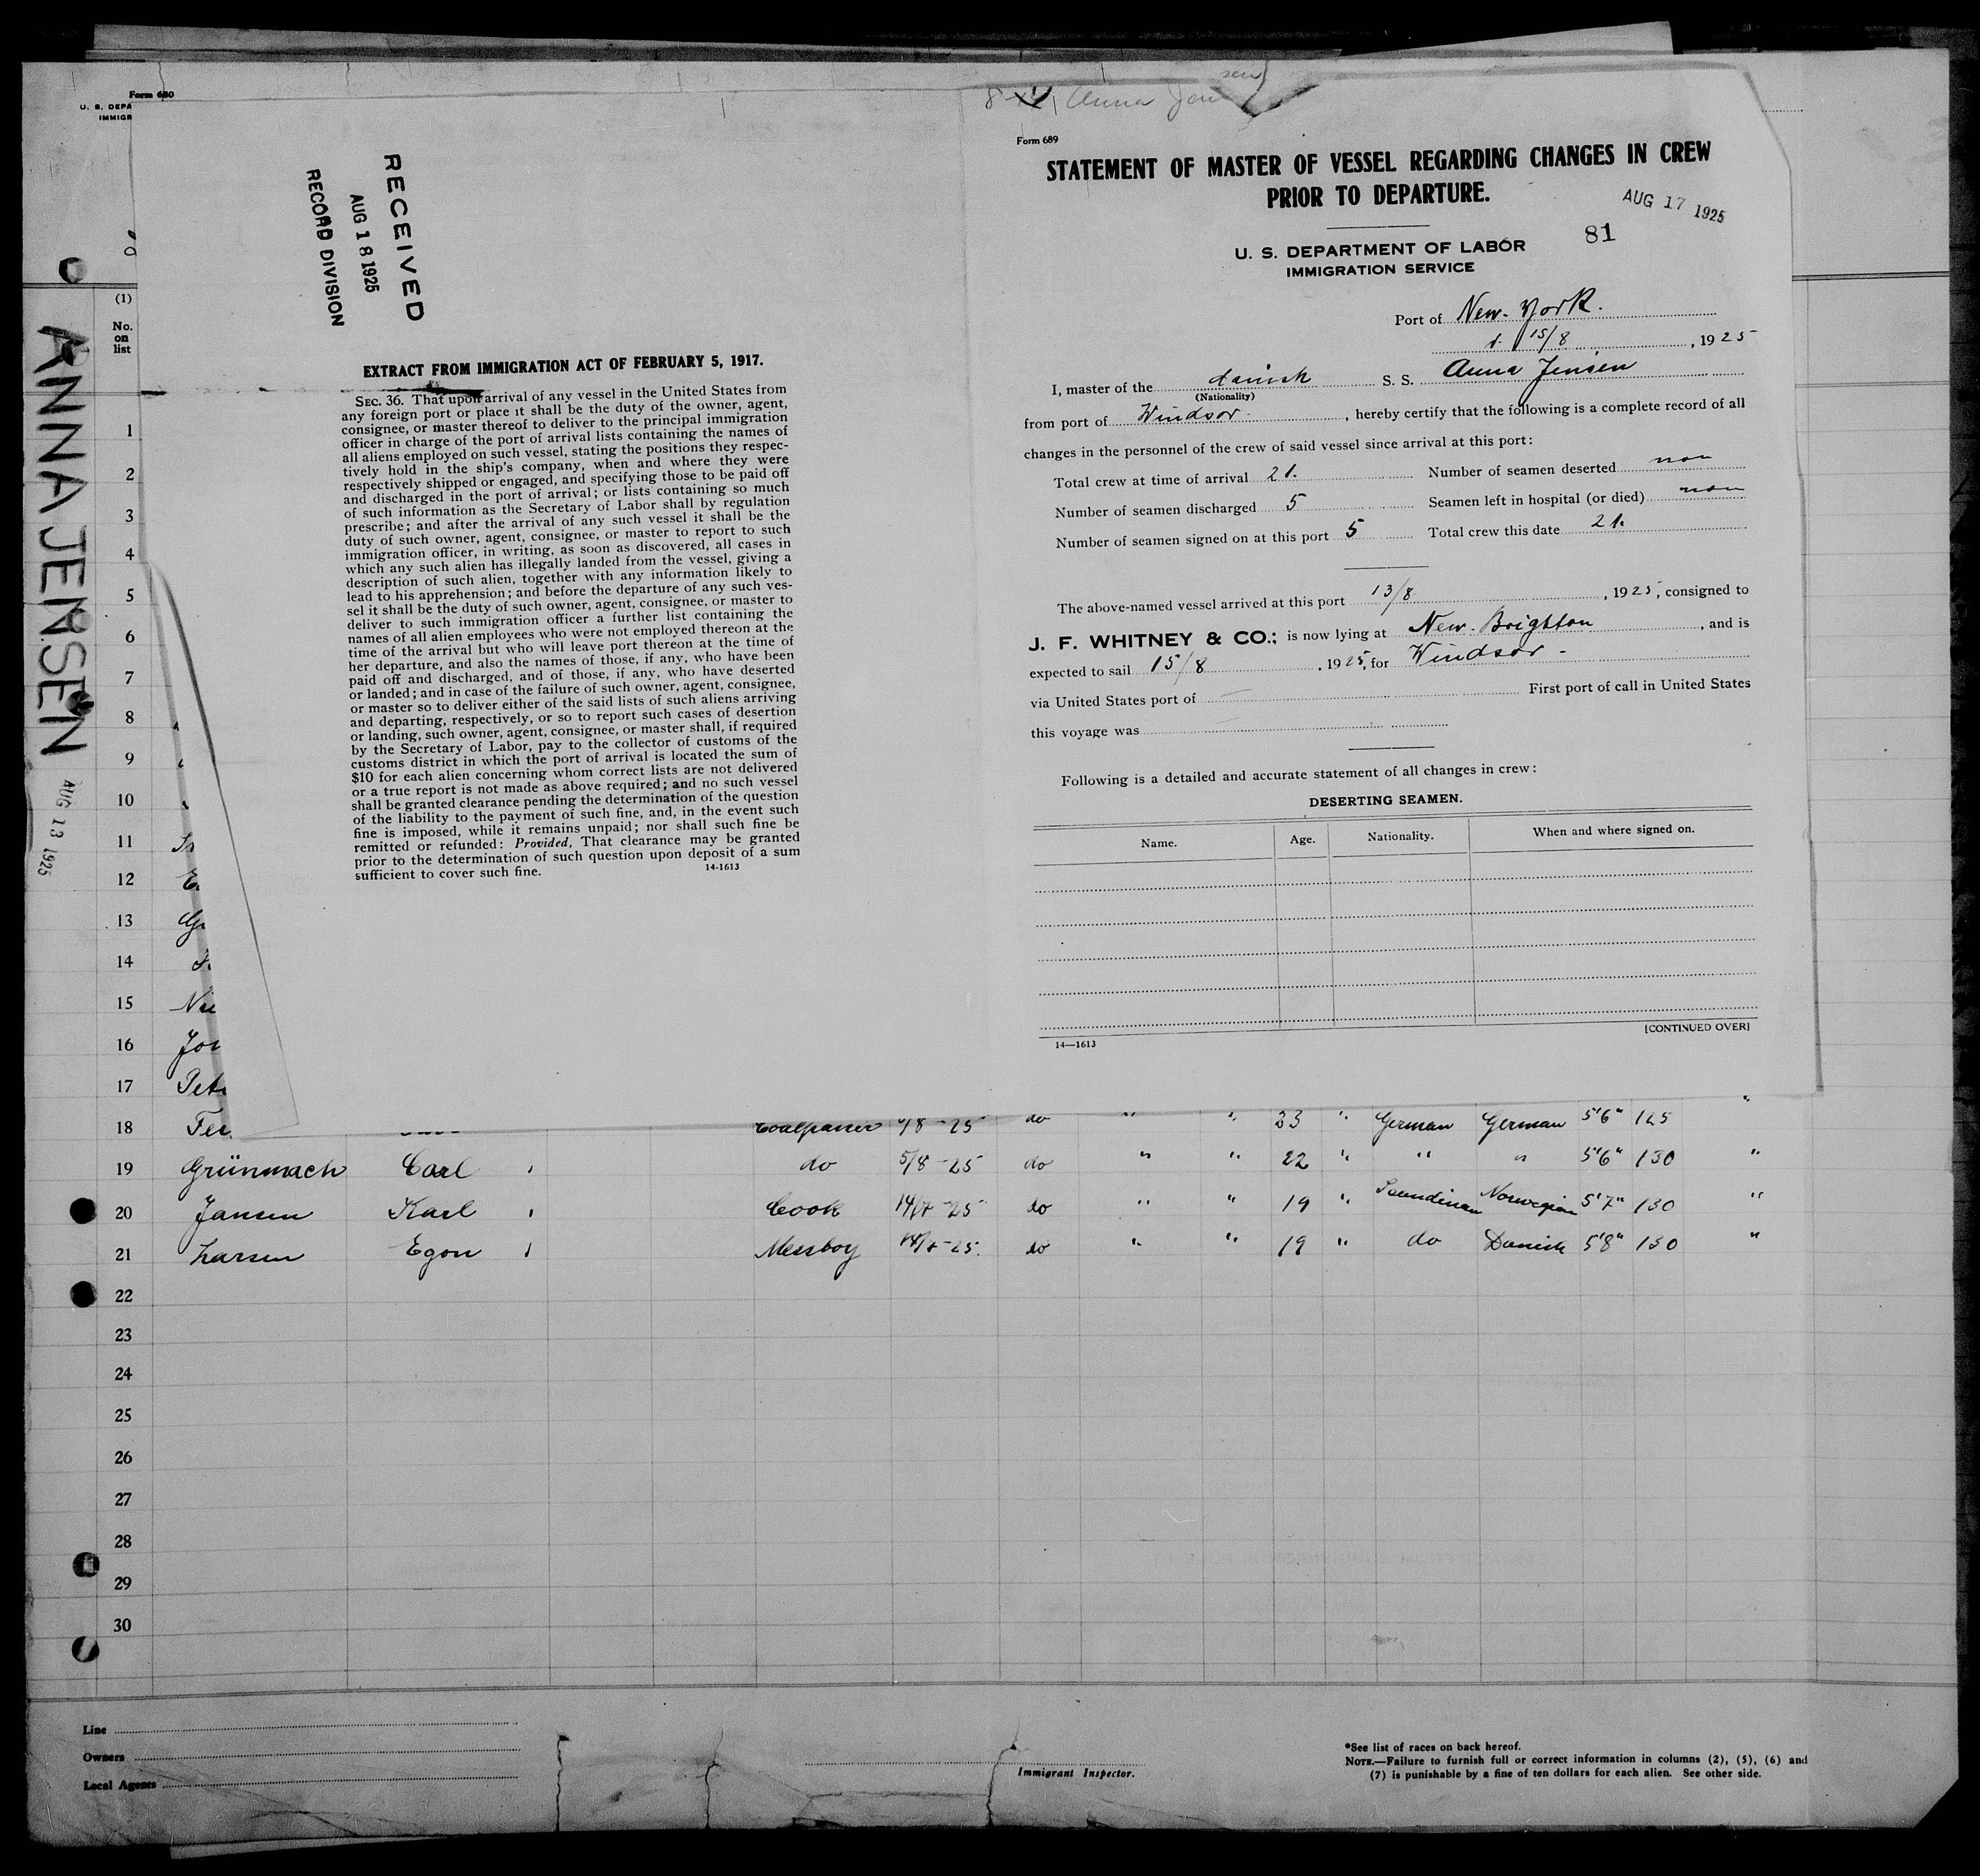 Form 680
U. S. DEPA
IMMIGR
ANNA JENSEN
AUG 13 1925
RECEIVED
AUG 18 1925
RECORD DIVISION
EXTRACT FROM IMMIGRATION ACT OF FEBRUARY 5, 1917.
SEC. 36. That upon arrival of any vessel in the United States from
any foreign port or place it shall be the duty of the owner, agent,
consignee, or master thereof to deliver to the principal immigration
officer in charge of the port of arrival lists containing the names of
all aliens employed on such vessel, stating the positions they respec-
tively hold in the ship's company, when and where they were
respectively shipped or engaged, and specifying those to be paid off
and discharged in the port of arrival; or lists containing so much
of such information as the Secretary of Labor shall by regulation
prescribe; and after the arrival of any such vessel it shall be the
duty of such owner, agent, consignee, or master to report to such
immigration officer, in writing, as soon as discovered, all cases in
which any such alien has illegally landed from the vessel, giving a
description of such alien, together with any information likely to
lead to his apprehension; and before the departure of any such ves-
sel it shall be the duty of such owner, agent, consignee, or master to
deliver to such immigration officer a further list containing the
names of all alien employees who were not employed thereon at the
time of the arrival but who will leave port thereon at the time of
her departure, and also the names of those, if any, who have been
paid off and discharged, and of those, if any, who have deserted
or landed; and in case of the failure of such owner, agent, consignee,
or master so to deliver either of the said lists of such aliens arriving
and departing, respectively, or so to report such cases of desertion
or landing, such owner, agent, consignee, or master shall, if required
by the Secretary of Labor, pay to the collector of customs of the
customs district in which the port of arrival is located the sum of
$10 for each alien concerning whom correct lists are not delivered
or a true report is not made as above required; and no such vessel
shall be granted clearance pending the determination of the question
of the liability to the payment of such fine, and, in the event such
fine is imposed, while it remains unpaid; nor shall such fine be
remitted or refunded: Provided, That clearance may be granted
prior to the determination of such question upon deposit of a sum
sufficient to cover such fine. 14-1613
Anna Jen sen
Form 689
STATEMENT OF MASTER OF VESSEL REGARDING CHANGES IN CREW
PRIOR TO DEPARTURE.
AUG 17 1925
81
U. S. DEPARTMENT OF LABOR
IMMIGRATION SERVICE
Port of New-York.
d. 15/8, 1925
I, master of the danish S. S. Anna Jensen
(Nationality)
from port of Windsor, hereby certify that the following is a complete record of all
changes in the personnel of the crew of said vessel since arrival at this port:
Total crew at time of arrival 21. Number of seamen deserted non
Number of seamen discharged 5 Seamen left in hospital (or died) non
Number of seamen signed on at this port 5 Total crew this date 21.
The above-named vessel arrived at this port 13/8, 1925, consigned to
J. F. WHITNEY & CO.; is now lying at New-Brighton, and is
expected to sail 15/8, 1925, for Windsor -
via United States port of — First port of call in United States
this voyage was —
Following is a detailed and accurate statement of all changes in crew:
DESERTING SEAMEN.
Name. Age. Nationality. When and where signed on.
[CONTINUED OVER]
14—1613
(1)
No.
on
list
1
2
3
4
5
6
7
8
9
10
11
12
13
14
15
16
17 Pet
18 Coalpasser /8-25 do " " 23 " German German 5'6" 125 "
19 Grünmach Carl do 5/8-25 do " " 22 " " " 5'6" 130 "
20 Jansen Karl Cook 14/7-25 do " " 19 " Scandinav Norwegian 5'7" 130 "
21 Larsen Egon Messboy 14/7-25. do " " 19 " do Danish 5'8" 130 "
22
23
24
25
26
27
28
29
30
Line
Owners
Local Agents
Immigrant Inspector.
*See list of races on back hereof.
NOTE.—Failure to furnish full or correct information in columns (2), (5), (6) and
(7) is punishable by a fine of ten dollars for each alien. See other side.